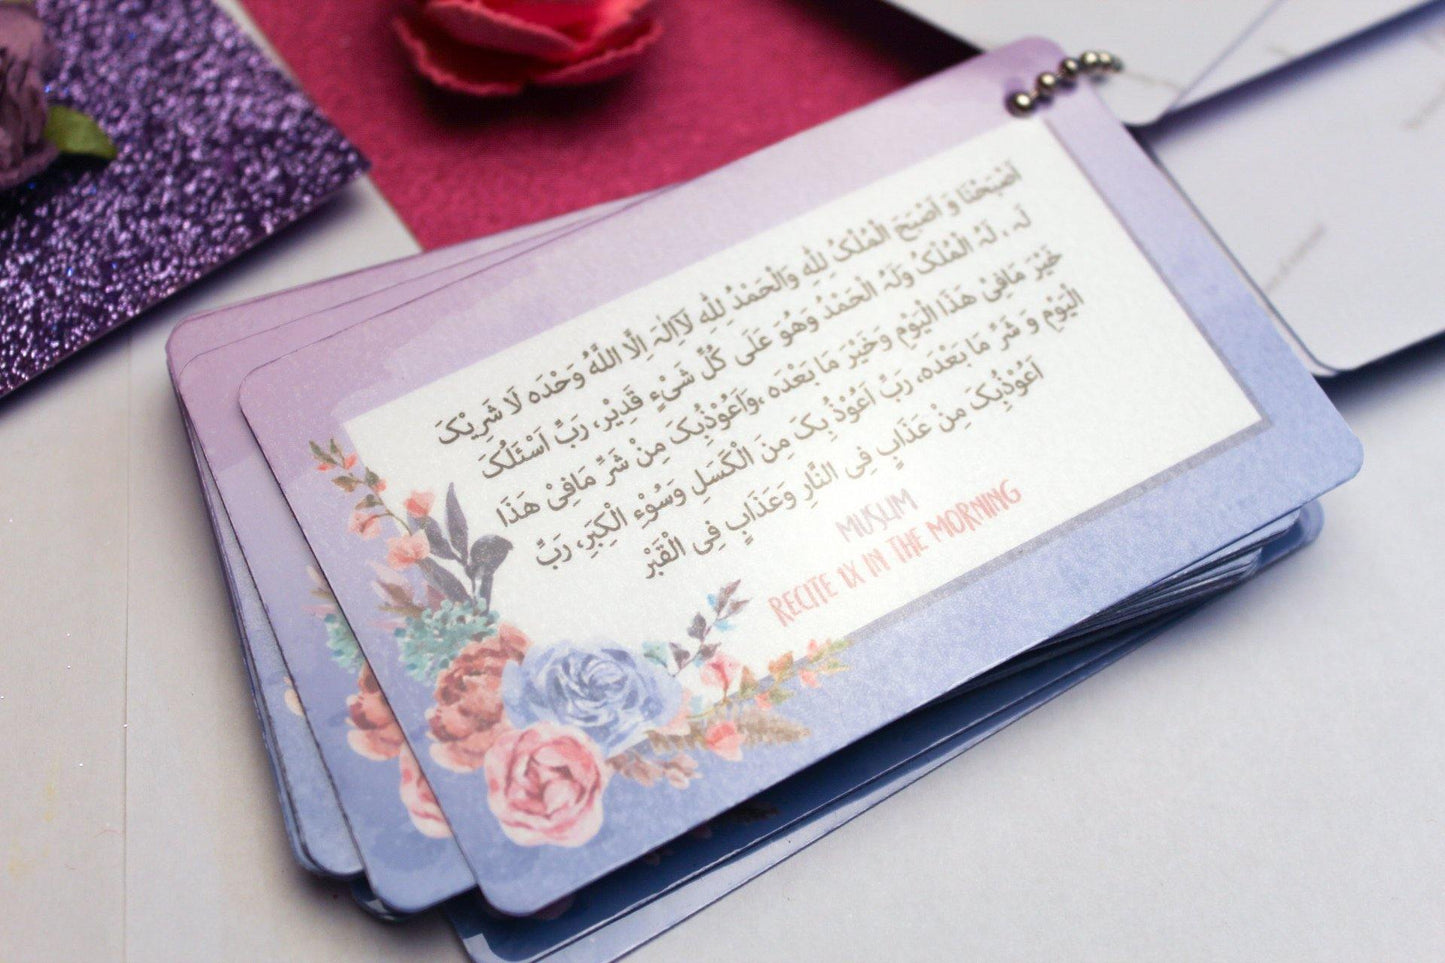 اَصْبَحْنَا وَ اَصْبَحَ الْمُلْکُ لِلّٰهِ وَالْحَمْدُ لِلّٰهِ لَآاِلٰهَ اِلَّا اللّٰهُ وَحْدَه لَا شَرِيْکَ
لَه ، لَهُ الْمُلْکُ وَلَهُ الْحَمْدُ وَهُوَ عَلٰی کُلِّ شَیْءٍ قَدِيْر، رَبِّ اَسْئَلُکَ
خَيْرَ مَافِیْ هَذَا الْيَوْمِ وَخَيْرَ مَا بَعْدَه ،وَاَعُوْذُبِکَ مِنْ شَرِّ مَافِیْ هَذَا
الْيَوْمِ وَ شَرِّ مَا بَعْدَه، رَبِّ اَعُوْذُ بِکَ مِنَ الْکَسَلِ وَسُوْءِ الْکِبَرِ، رَبِّ
اَعُوْذُبِکَ مِنْ عَذَابٍ فِی النَّارِ وَعَذَابٍ فِی الْقَبْرِ
MUSLIM
RECITE 1X IN THE MORNING